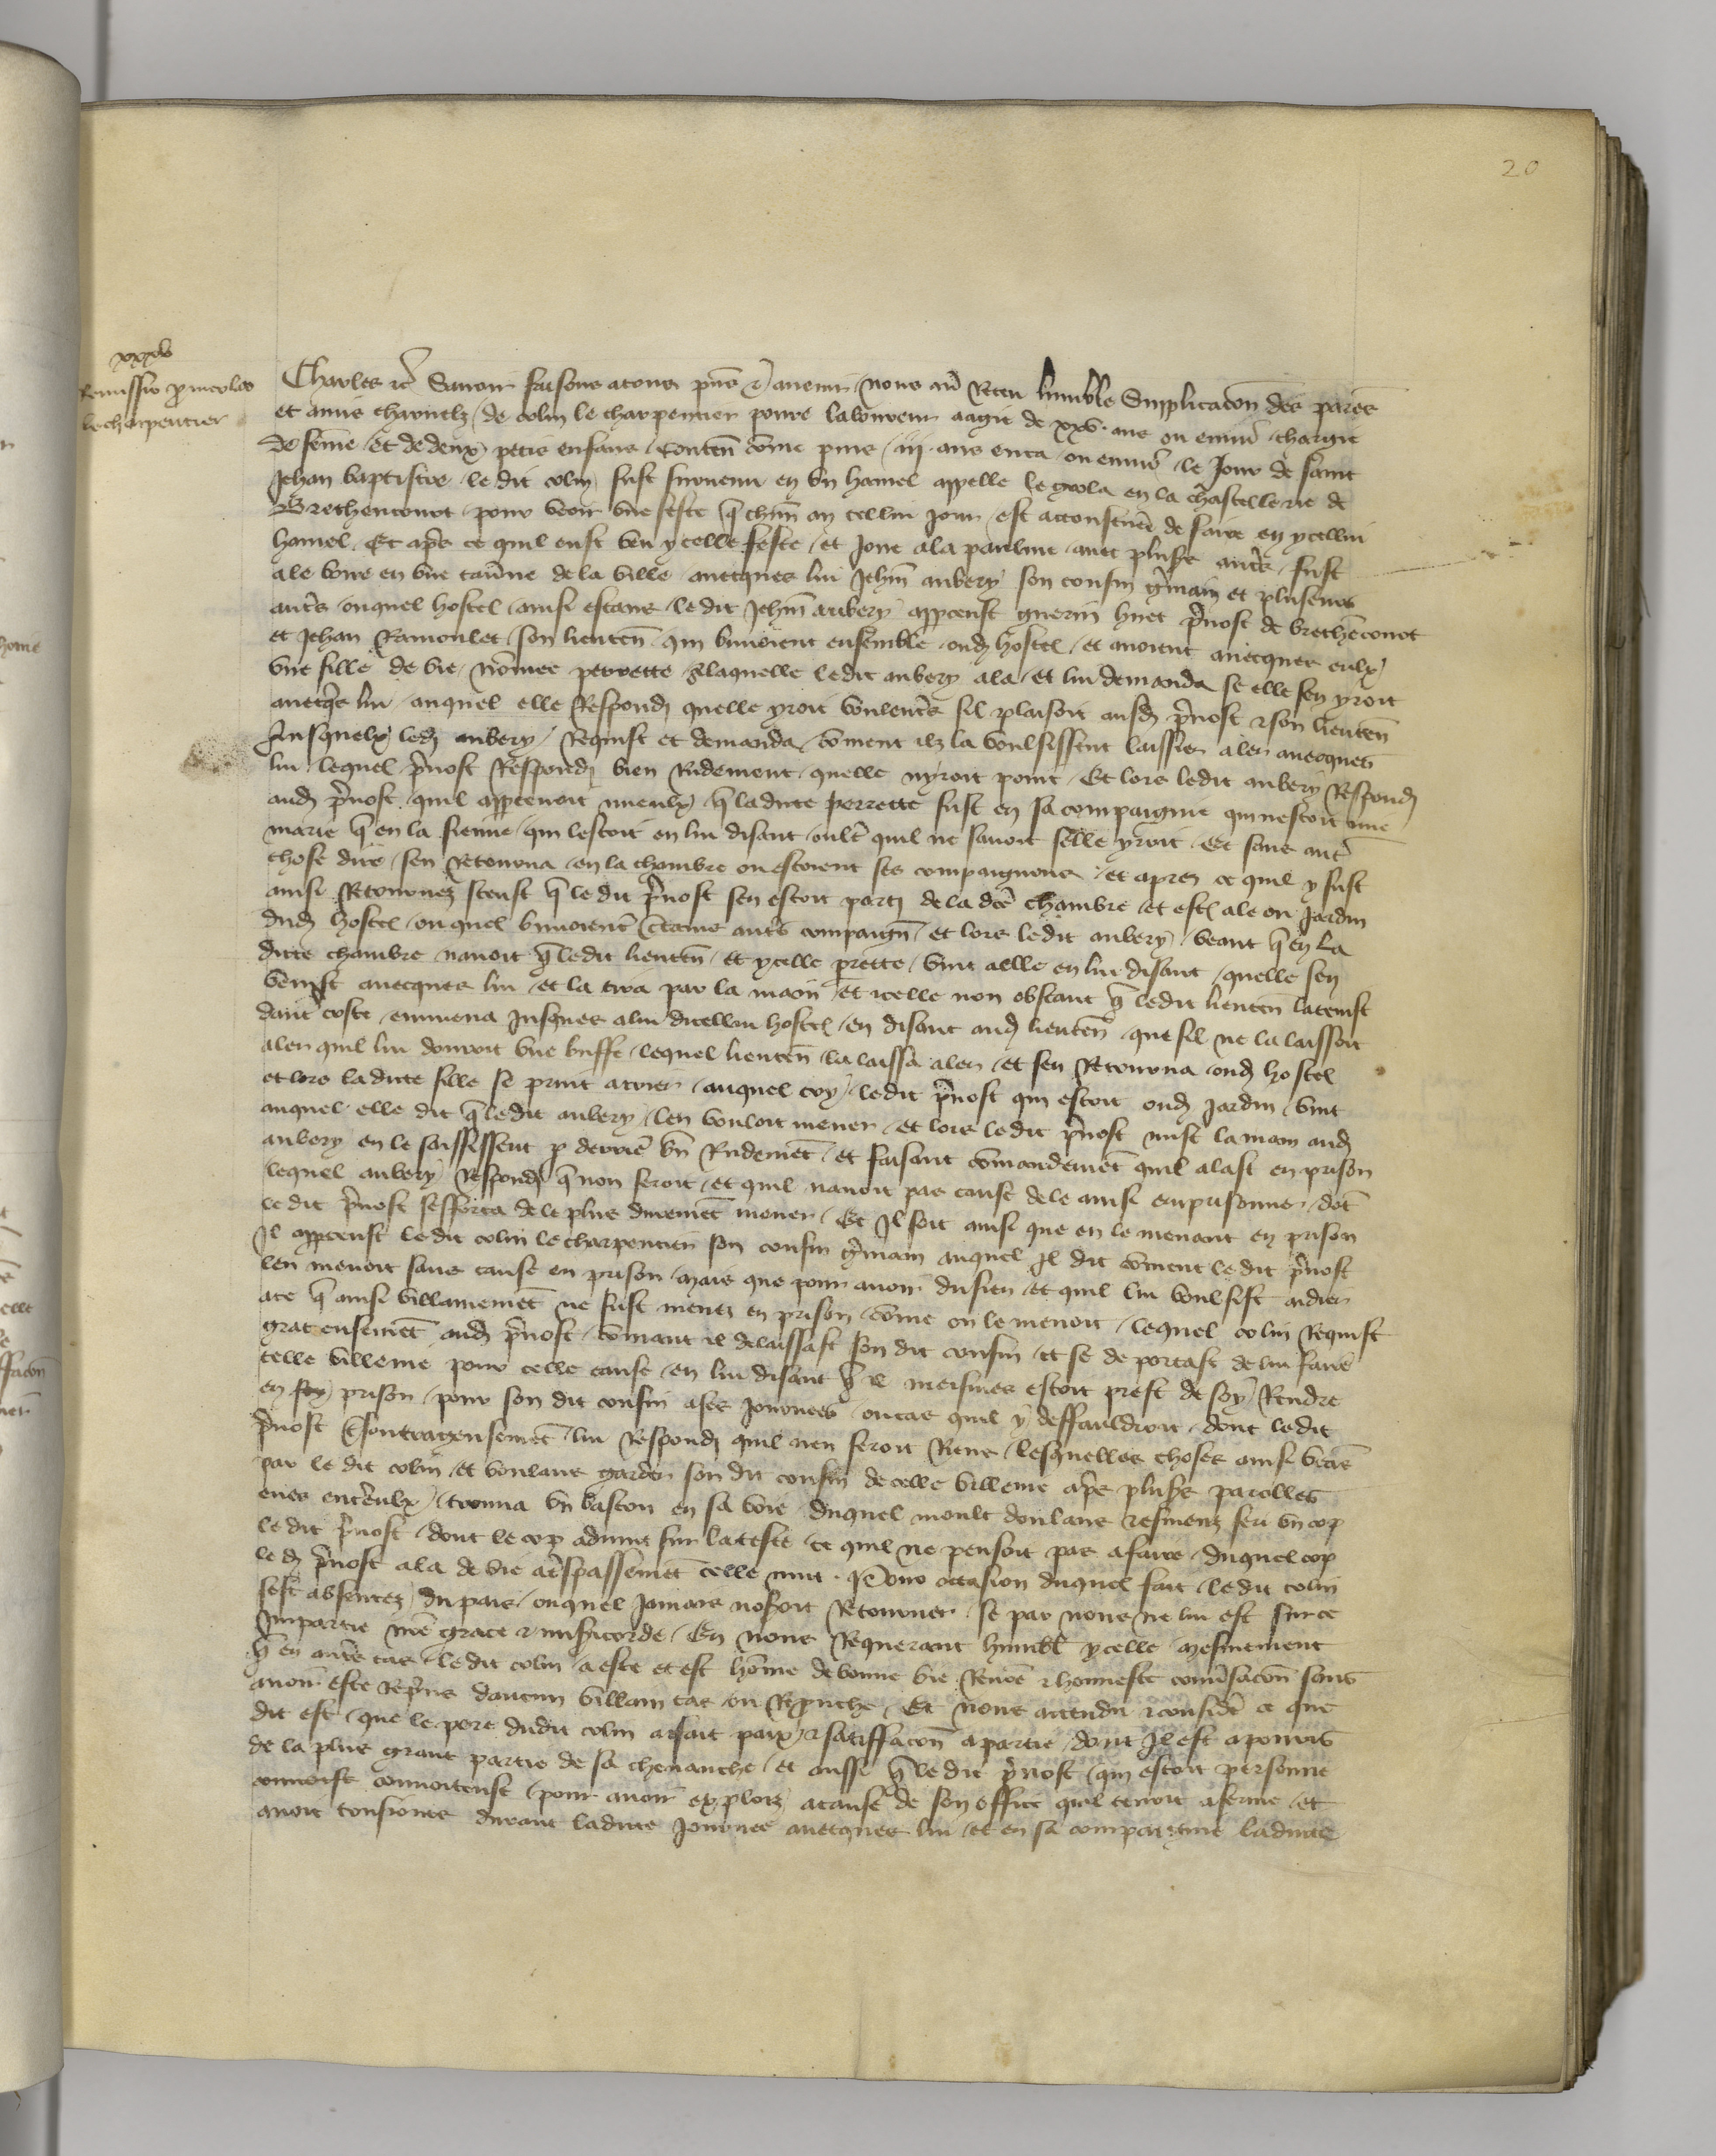 20
xxxv
Remissio p nicolao
lecharpentier
Charles etc Savoir faisons a tous pñs et avenir nous avõ Receu lumble Supplicacoñ des parẽs
et amis charnelz de Colin le charpentier povre laboureur aagie de xxv ans ou enviro chargie
de feme et de deux petis enfans Conteñ cõme puis iij ans enca ou enviro le Jour de saint
Jehan baptistre le dit colin fust survenu en un hamel appelle en la chastellerie de
Brethencourt pour veoir une feste q chũn an cellui jour est acconstume de faire en ycellui
hamel Et apres ce quil eust veu ycelle feste et Joue ala paulme avec plusrs autrs fust
ale boire en une tav̄ne de la ville avecques lui Jehañ aubery son cousin gmain et plusieurs
autrs ouquel hostel ainsi estans le dit Jehañ aubery appceust guerin huet pvost de brethẽcourt
et Jehan Ramoulet son lieuteñ qui buvoient ensemble oud hostel et avoient avecques eulx
une fille de vie nõmee perrette a laquelle ledit aubery ala et lui demanda se elle sen yroit
avecqs lui auquel elle Respond quelle yroit voulentrs sil plaisoit ausd pvost et son lieuteñ
Ausquelx led aubery Requist et demanda cõment ilz la voulsissent laissier aler avecques
lui lequel pvost Respond bien Rudement quelle nyroit point Et lors ledit aubery Respond
aud pvost quil appartenoit mieulx q ladicte perrette fust en sa compaignie qui nestoit mie
marie q en la sienne qui lestoit en lui disant oultr quil ne savoit selle yroit Et sans autr
chose dire sen Retourna en la chambre ou estoient ses compaignons et apres ce quil y fust
ainsi Retournez sceust q le dit pvost sen estoit parti de la dce chambre et estoit ale ou jardin
dud hostel ouquel buvoient ctains autrs compaigñ et lors ledit aubery veant q en la
dicte chambre navoit q ledit lieuteñ et ycelle prette vint a elle en lui disant quelle sen
venist avecques lui et la tira par la main et icelle non obstant q ledit lieuteñ la tenist
daut coste emmena Jusques dicellui hostel en disant aud lieuteñ que sil ne la laissoit
aler quil lui donroit une buffe lequel lieuteñ la laissa aler et sen Retourna oud hostel
et lors ladicte fille se print a crier auquel cry ledit pvost qui estoit oud jardin vint
auquel elle dit q ledit aubery len vouloit mener et lors le dit pvost mist la main aud
aubery en le saisissent p derrie bñ Rudemet et faisant cõmandemet quil alast en prison
lequel aubery Respond q non feroit et quil navoit pas cause de le ainsi emprisonner dot
le dit pvost sefforca de le plus duremet mener Et Il soit ainsi que en le menant en prison
Il appceust ledit colin lecharpentier son cousin gmain auquel Il dit cõment le dit pvost
len menoit sans cause en prison mais que pour avoir du sien et quil lui voulsist aidier
ace q ainsi villainemet ne fust menez en prison cõme on le menoit lequel colin Requist
gracieusemet aud pvost cõmant il delaissast son dit cousin et se deportast de lui faire
celle villenie pour celle cause en lui disant q il meismes estoit prest de soy Rendre
en prison pour son dit cousin a ses journees ou cas quil y deffauldroit dont ledit
pvost oultrageusemet lui Respond quil nen feroit Riens lesquelles choses ainsi
par le dit colin et voulans garder son dit cousin de celle villenie apres plusrs parolles
eues entreulx trouva un baston en sa voie duquel moult doulans et esmeuz feri un cop
le dit pvost dont le cop advint sur la teste ce quil ne pensoit pas a faire duquel cop
le d pvost ala de vie a trspassemet celle nuit Pour occasion duquel fait ledit colin
sest absentez du pais ouquel jamais noseroit Retourner se par nous ne lui est sur ce
impartie nre grace et misicorde En nous Requerant humbl ycelle mesmement
q en autrs cas le dit colin a este et est hõme de bonne vie Renõe et honneste convsacoñ sans
avoir este Reprins daucun villain cas ou Reprouche Et nous attendu et consider ce que
dit est que le pere dudit colin a fait paix et satiffacoñ a partie dont Il est apovris
de la plus grant partie de sa chevanche et aussi q le dit pvost qui estoit personne
convoiteuse pour avoir exploiz a cause de son office quil tenoit a ferme et
avoit tousiours durant ladicte journee avecques lui et en sa compaignie ladicte